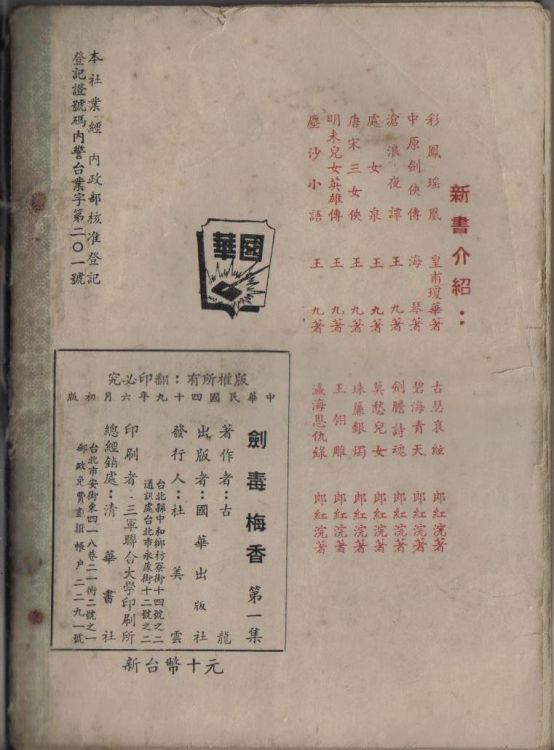 新書介紹：
彩鳳瑤凰 皇甫瓊華著
中原劍俠傳 海琴著
滄浪夜譚 王九著
處女泉 王九著
唐宋三女俠 王九著
明末兒女英雄傳 王九著
塵沙小語 王九著
古瑟哀絃 郎紅浣著
碧海青天 郎紅浣著
劍膽詩魂 郎紅浣著
莫愁兒女 郎紅浣著
珠簾銀燭 郎紅浣著
玉翎雕 郎紅浣著
瀛海恩仇錄 郎紅浣著
國華
本社業經內政部核准登記
登記證號碼內警台業字第二〇一號
版權所有：翻印必究
中華民國四十九年六月初版
劍毒梅香 第一集
著作者：古龍
出版者：國華出版社
發行人：杜美雲
台北縣中和鄉村寮街十四號之二
通訊處台北市永康街十二號之二
印刷者：三軍聯合大學印刷所
總經銷處：清華書社
台北市安街東四一八巷二一衖二號之一
郵政免費劃撥帳戶二二九一號
新台幣十元